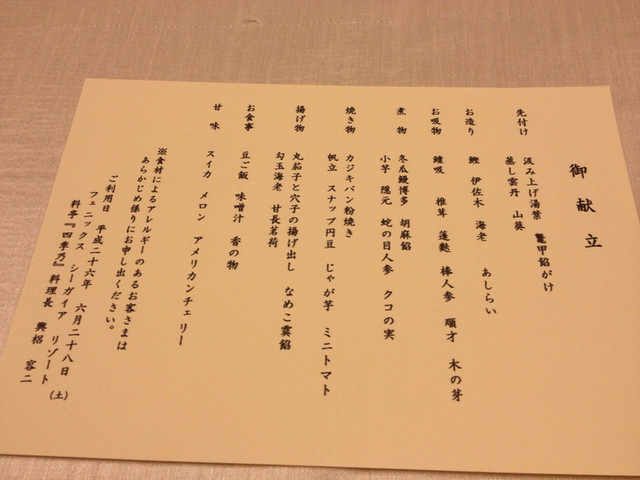 御献立
先付け 汲み上げ湯葉 鼈甲餡がけ
蒸し雲丹 山葵
お造り 鰹 伊佐木 海老 あしらい
お吸物 鱧吸 椎茸 蓮麩 棒人参 順才 木の芽
煮物 冬瓜鰻博多 胡麻餡
小芋 隠元 蛇の目人参 クコの実
焼き物 カジキパン粉焼き
帆立 スナップ円豆 じゃが芋 ミニトマト
揚げ物 丸茄子と穴子の揚げ出し なめこ霙餡
勾玉海老 甘長茗荷
お食事 豆ご飯 味噌汁 香の物
甘味 スイカ メロン アメリカンチェリー
※食材によるアレルギーのあるお客さまは
あらかじめ係りにお申し出ください。
ご利用日 平成二十六年 六月二十八日(土)
フェニックス シーガイア リゾート
料亭『四季乃』料理長 興梠 容二